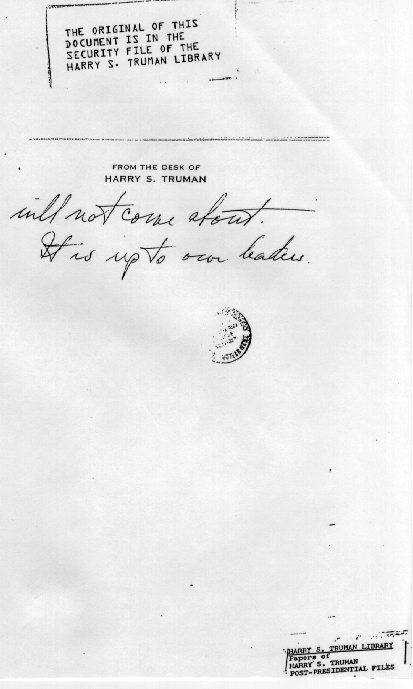 THE ORIGINAL OF THIS
DOCUMENT IS IN THE
SECURITY FILE OF THE
HARRY S. TRUMAN LIBRARY
FROM THE DESK OF
HARRY S. TRUMAN
will not come about.
It is up to our leaders.
HARRY S. TRUMAN LIBRARY
Papers of
HARRY S. TRUMAN
POST-PRESIDENTIAL FILES